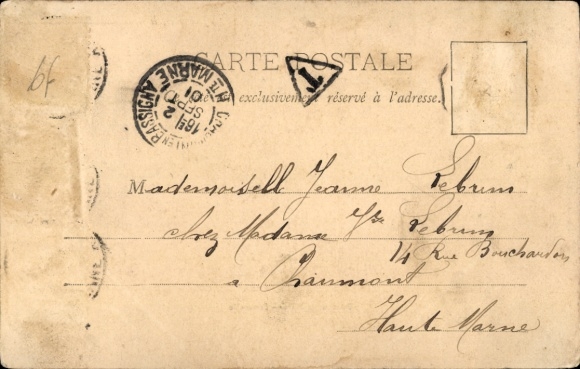 6f
CARTE POSTALE
T
CHAUMONT EN BASSIGNY
Hte MARNE
16E
2
SEPT
01
exclusivement réservé à l'adresse.
Mademoisell Jeanne Lebrun
chez Madame Vve Lebrun
14 Rue Bouchardon
a Chaumont
Haute Marne